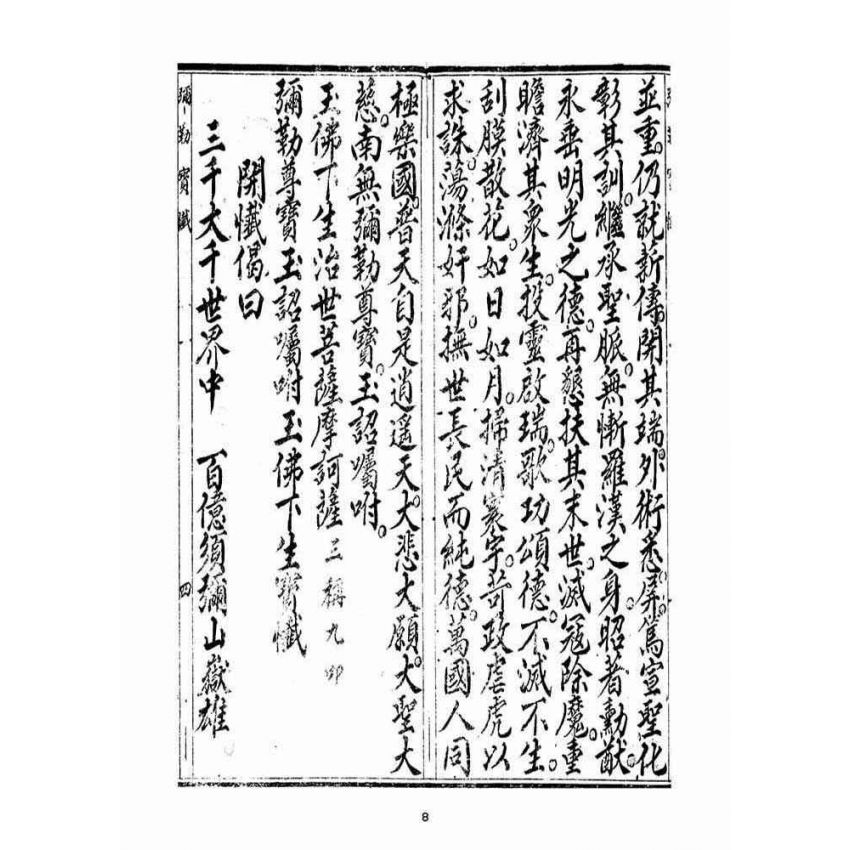 並重。仍就薪傳開其端。外術悉屏。篤宣聖化
彰其訓。繼承聖脈。無慚羅漢之身。昭著勳猷。
永垂明光之德。再懇扶其末世。滅寇除魔。重
瞻濟其眾生。投靈啟瑞。歌功頌德。不滅不生。
刮膜散花。如日如月。掃清寰宇。苛政虐虎以
求誅。蕩滌奸邪。撫世長民而純德。萬國人同
極樂國。普天自是逍遙天。大悲大願。大聖大
慈。南無彌勒尊寶。玉詔囑咐。
玉佛下生治世菩薩摩訶薩 三稱九叩
彌勒尊寶玉詔囑咐玉佛下生寶懺
開懺偈曰
三千大千世界中 百億須彌山嶽雄
彌勒寶懺 四
8